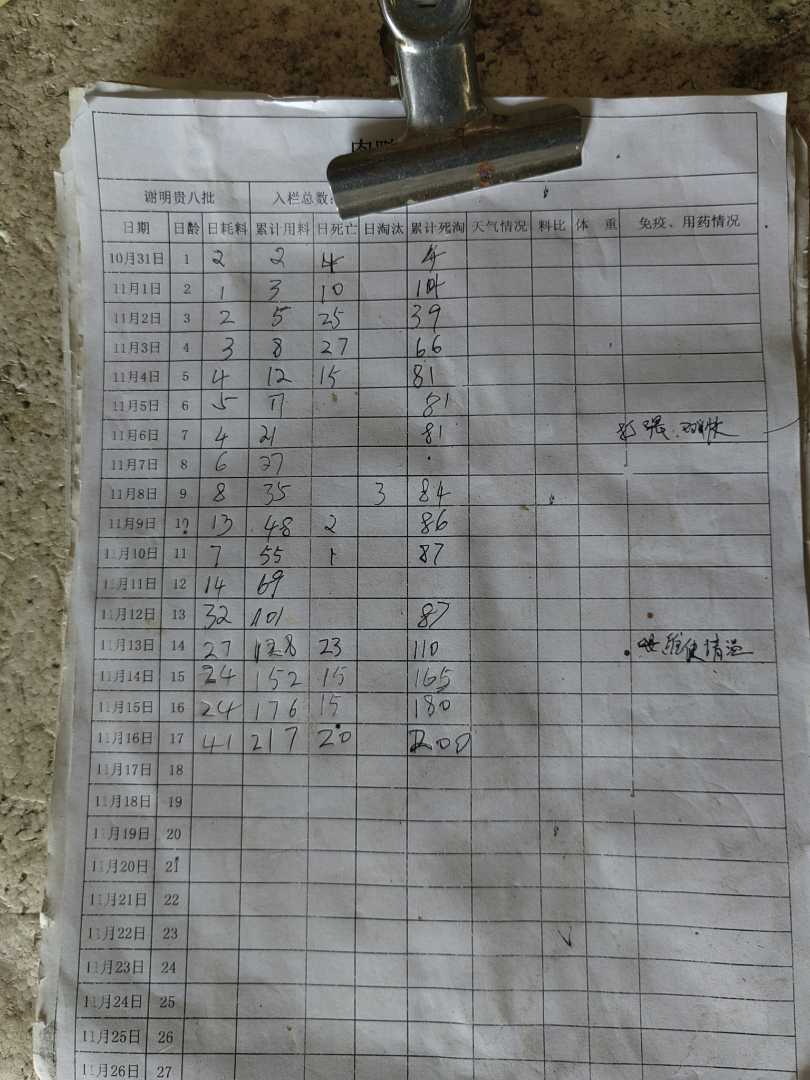 谢明贵八批 入栏总数:
日期 日龄 日耗料 累计用料 日死亡 日淘汰 累计死淘 天气情况 料比 体 重 免疫、用药情况
10月31日 1 2 2 4 4
11月1日 2 1 3 10 14
11月2日 3 2 5 25 39
11月3日 4 3 8 27 66
11月4日 5 4 12 15 81
11月5日 6 5 17 81
11月6日 7 4 21 81
11月7日 8 6 27
11月8日 9 8 35 3 84
11月9日 10 13 48 2 86
11月10日 11 7 55 1 87
11月11日 12 14 69
11月12日 13 32 101 87
11月13日 14 27 128 23 110
11月14日 15 24 152 15 165
11月15日 16 24 176 15 180
11月16日 17 41 217 20 200
11月17日 18
11月18日 19
11月19日 20
11月20日 21
11月21日 22
11月22日 23
11月23日 24
11月24日 25
11月25日 26
11月26日 27